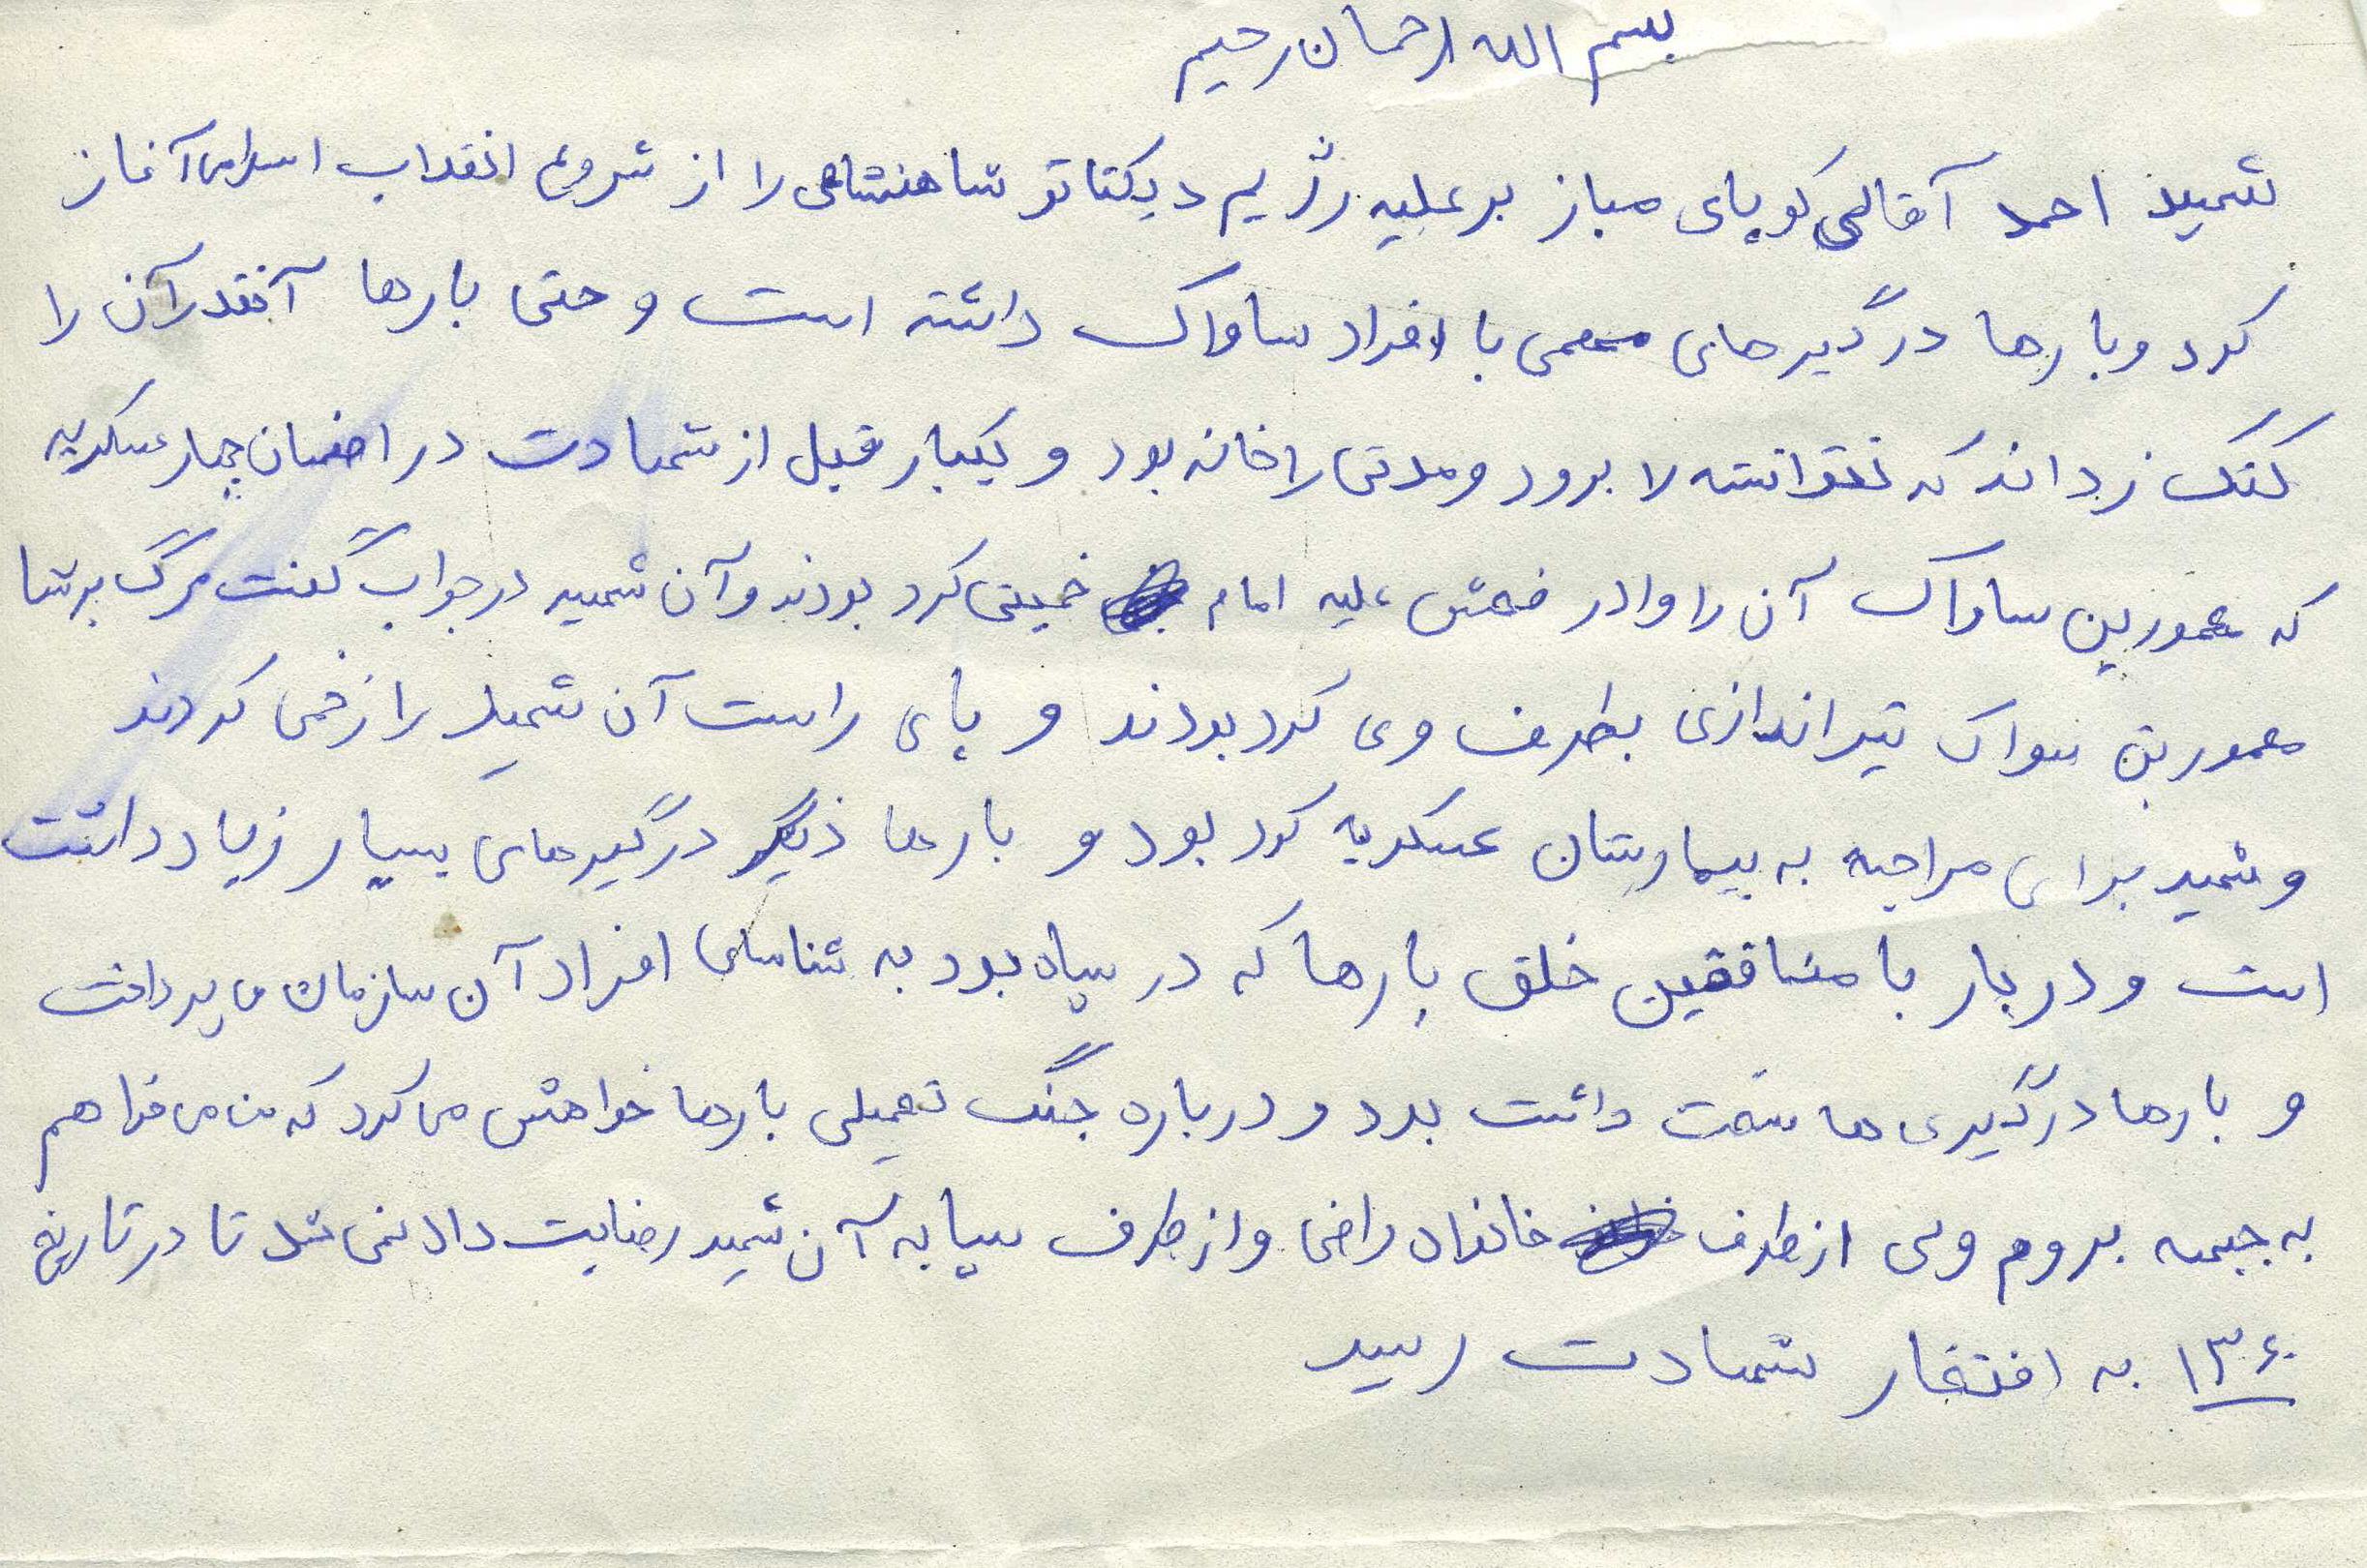 بسم الله ارحمان رحیم
شهید احمد آقالی کوپای مباز بر علیه رژیم دیکتاتو شاهنشاهی را از شروع انقلاب اسلامی آغاز
کرد و بارها درگیرهای مهمی با افراد ساواک داشته است و حتی بارها آنقدر آن را
کتک زداند که نتوانسته را برود و مدتی را خانه بود و یکبار قبل از شهادت در چهار عسکریه
که معمورین ساواک آن را وادر فحش علیه امام خمینی کرد بودند و آن شهید در جواب گفت مرگ بر شا
معمورین سواک تیراندازی بطرف وی کرد بودند و پای راست آن شهید را زخمی کردند
و شهید برای مراجعه به بیمارستان عسکریه کرد بود و بارها دیگر درگیرهای بسیار زیاد داشت
است و در بار با منافقین خلق بارها که در سپاه بود به شناسای افراد آن سازمان می پرداخت
و بارها درگیری ها سخت داشت بود و درباره جنگ تحمیلی بارها خواهش می کرد که من می خواهم
به جبهه بروم ولی از طرف خانواد راضی و از طرف سپا به آن شهید رضایت داد نمی شد تا در تاریخ
۱۳۶۰ به افتخار شهادت رسید